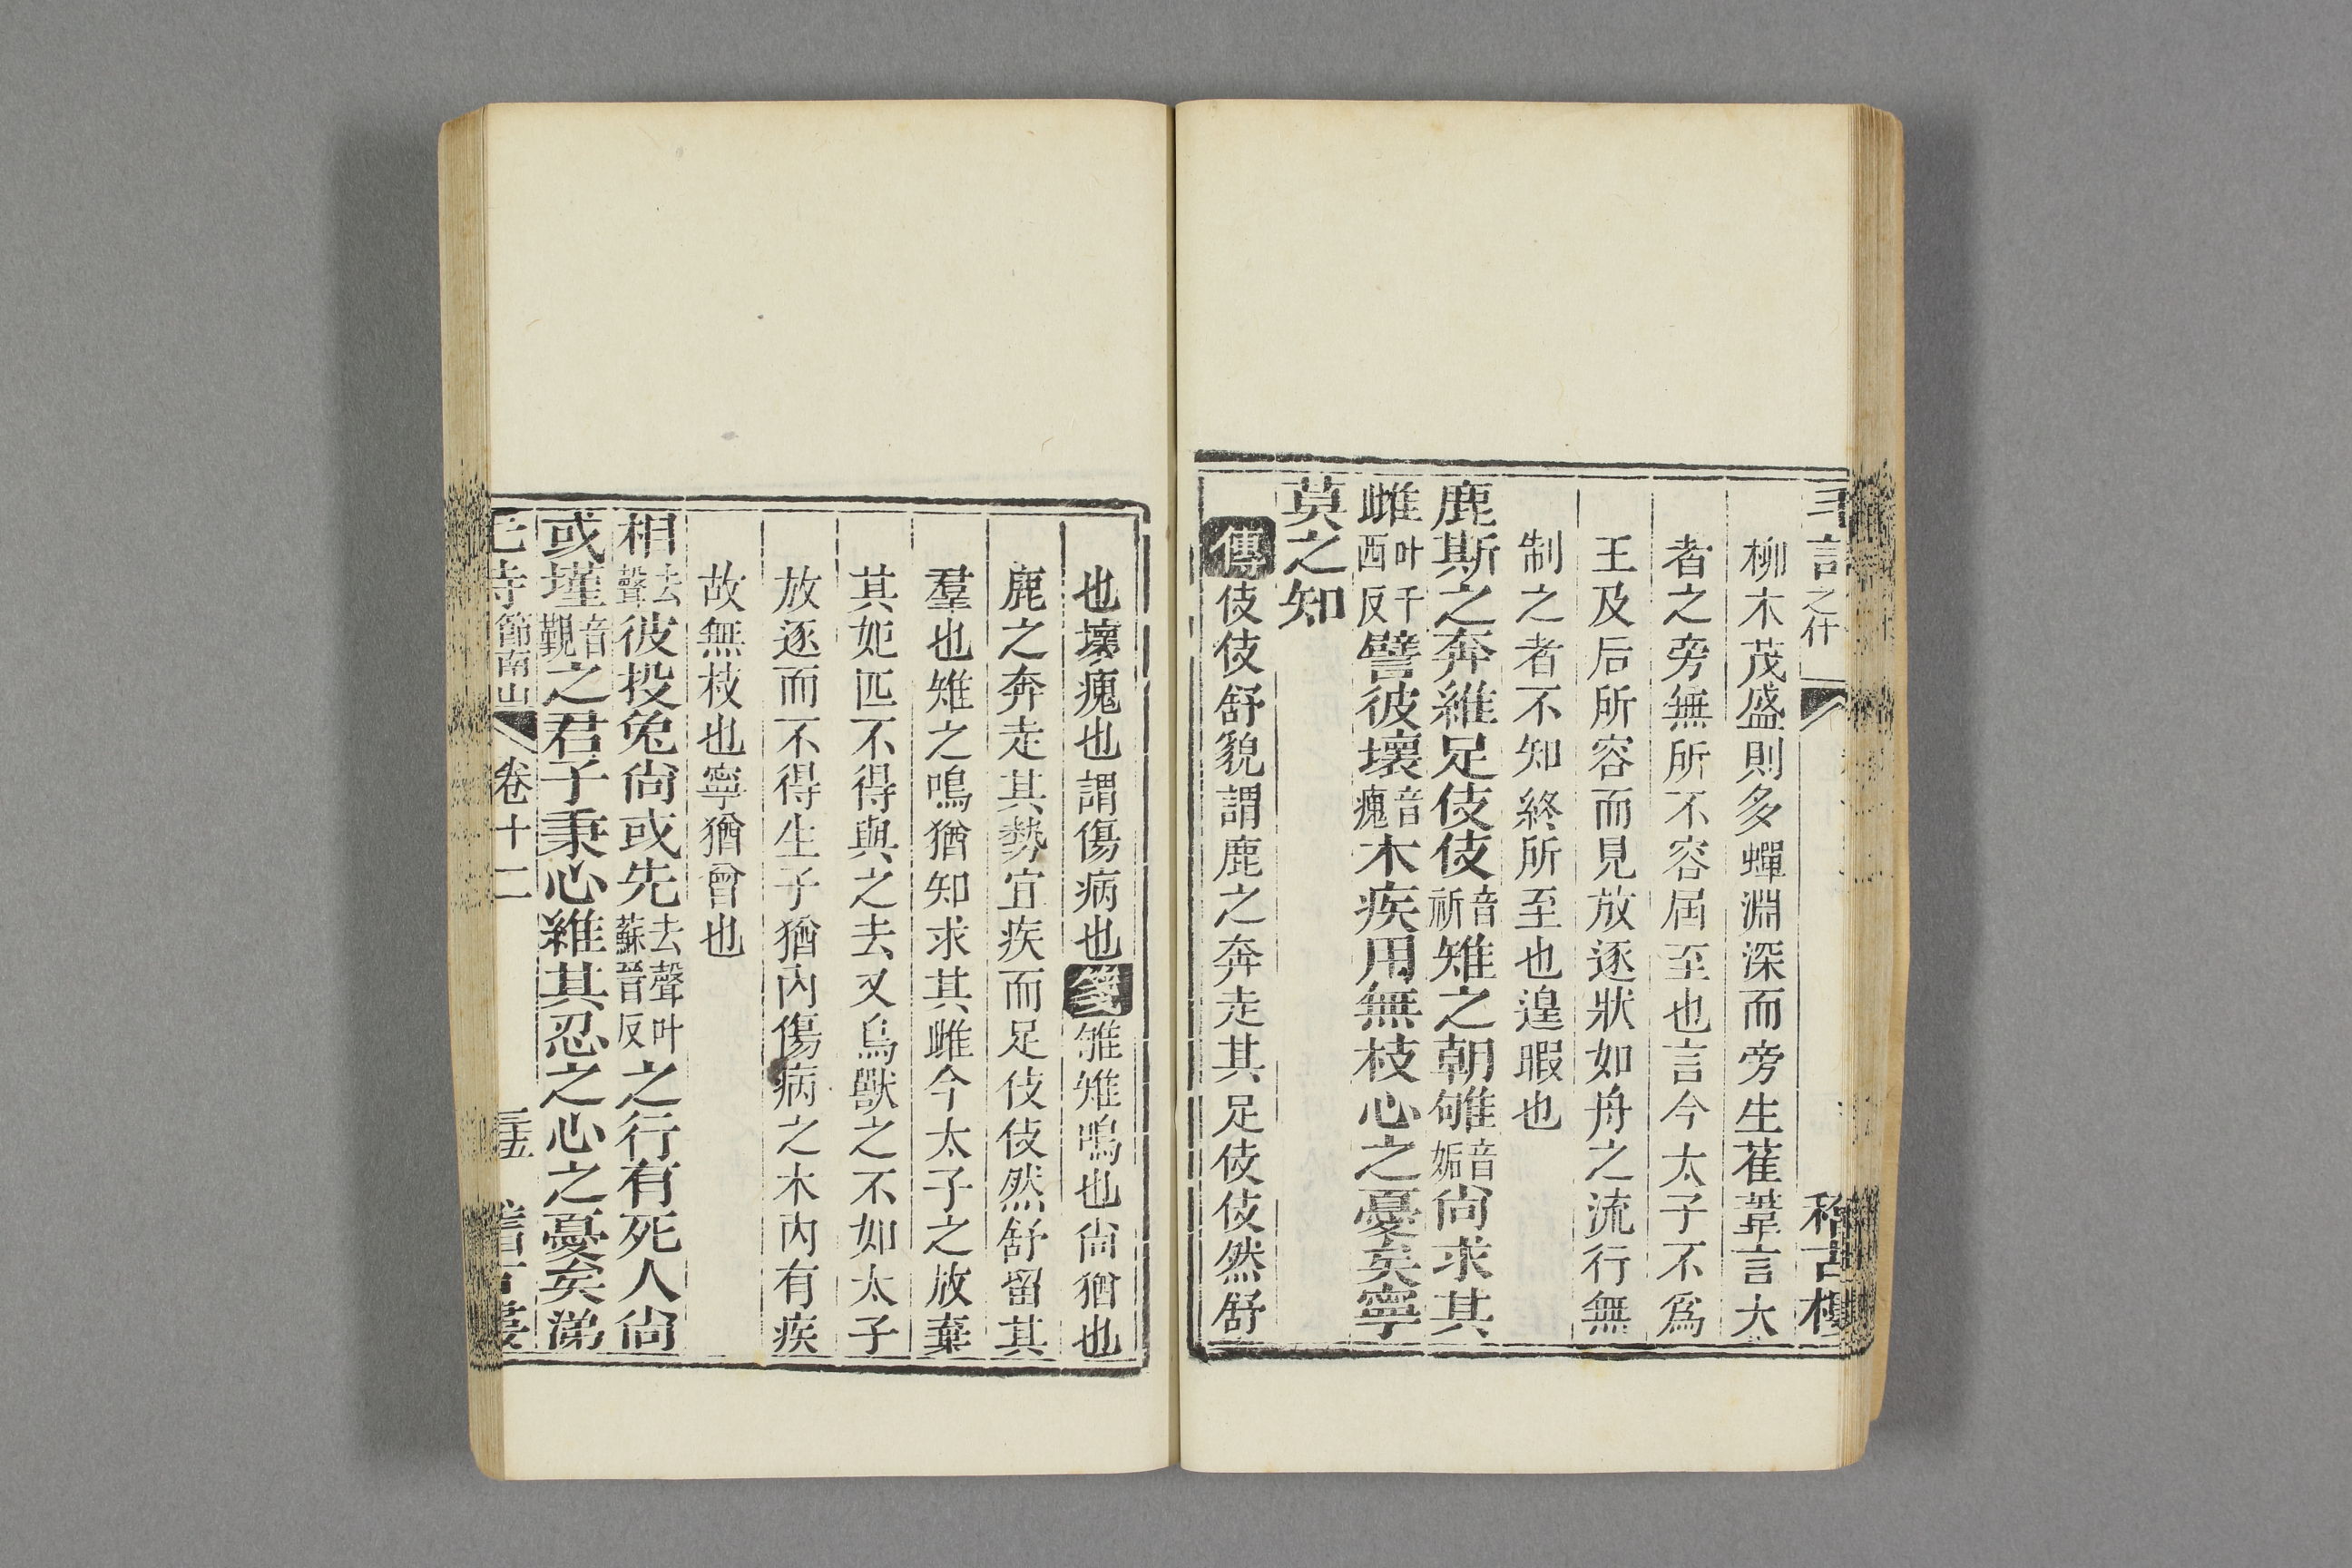 之什 稽古樓
柳木茂盛則多蟬淵深而旁生萑葦言大
者之旁無所不容屆至也言今太子不爲
王及后所容而見放逐狀如舟之流行無
制之者不知終所至也遑暇也
鹿斯之奔維足伎伎音祈雉之朝雊音姤尙求其
雌叶千西反譬彼壞音瘣木疾用無枝心之憂矣寧
莫之知
傳伎伎舒貌謂鹿之奔走其足伎伎然舒
也壞瘣也謂傷病也箋雊雉鳴也尙猶也
鹿之奔走其勢宜疾而足伎伎然舒留其
羣也雉之鳴猶知求其雌今太子之放棄
其妃匹不得與之去又鳥獸之不如太子
放逐而不得生子猶內傷病之木內有疾
故無枝也寧猶曾也
相去聲彼投兔尙或先去聲叶蘇晉反之行有死人尙
或墐音覲之君子秉心維其忍之心之憂矣涕
節南山 卷十二